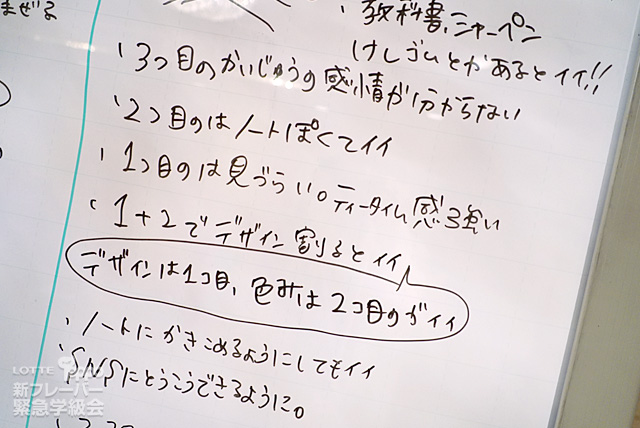 まぜる
・教科書、シャーペン
けしゴムとかあるとイイ!!
・3つ目のかいじゅうの感情が分からない
・2つ目のはノートぽくてイイ
・1つ目のは見づらい。ティータイム感強い
・1+2でデザイン割るとイイ
デザインは1コ目、色みは2コ目のがイイ
・ノートにかきこめるようにしてもイイ
・SNSにとうこうできるように。
LOTTE
新フレーバー
緊急学級会